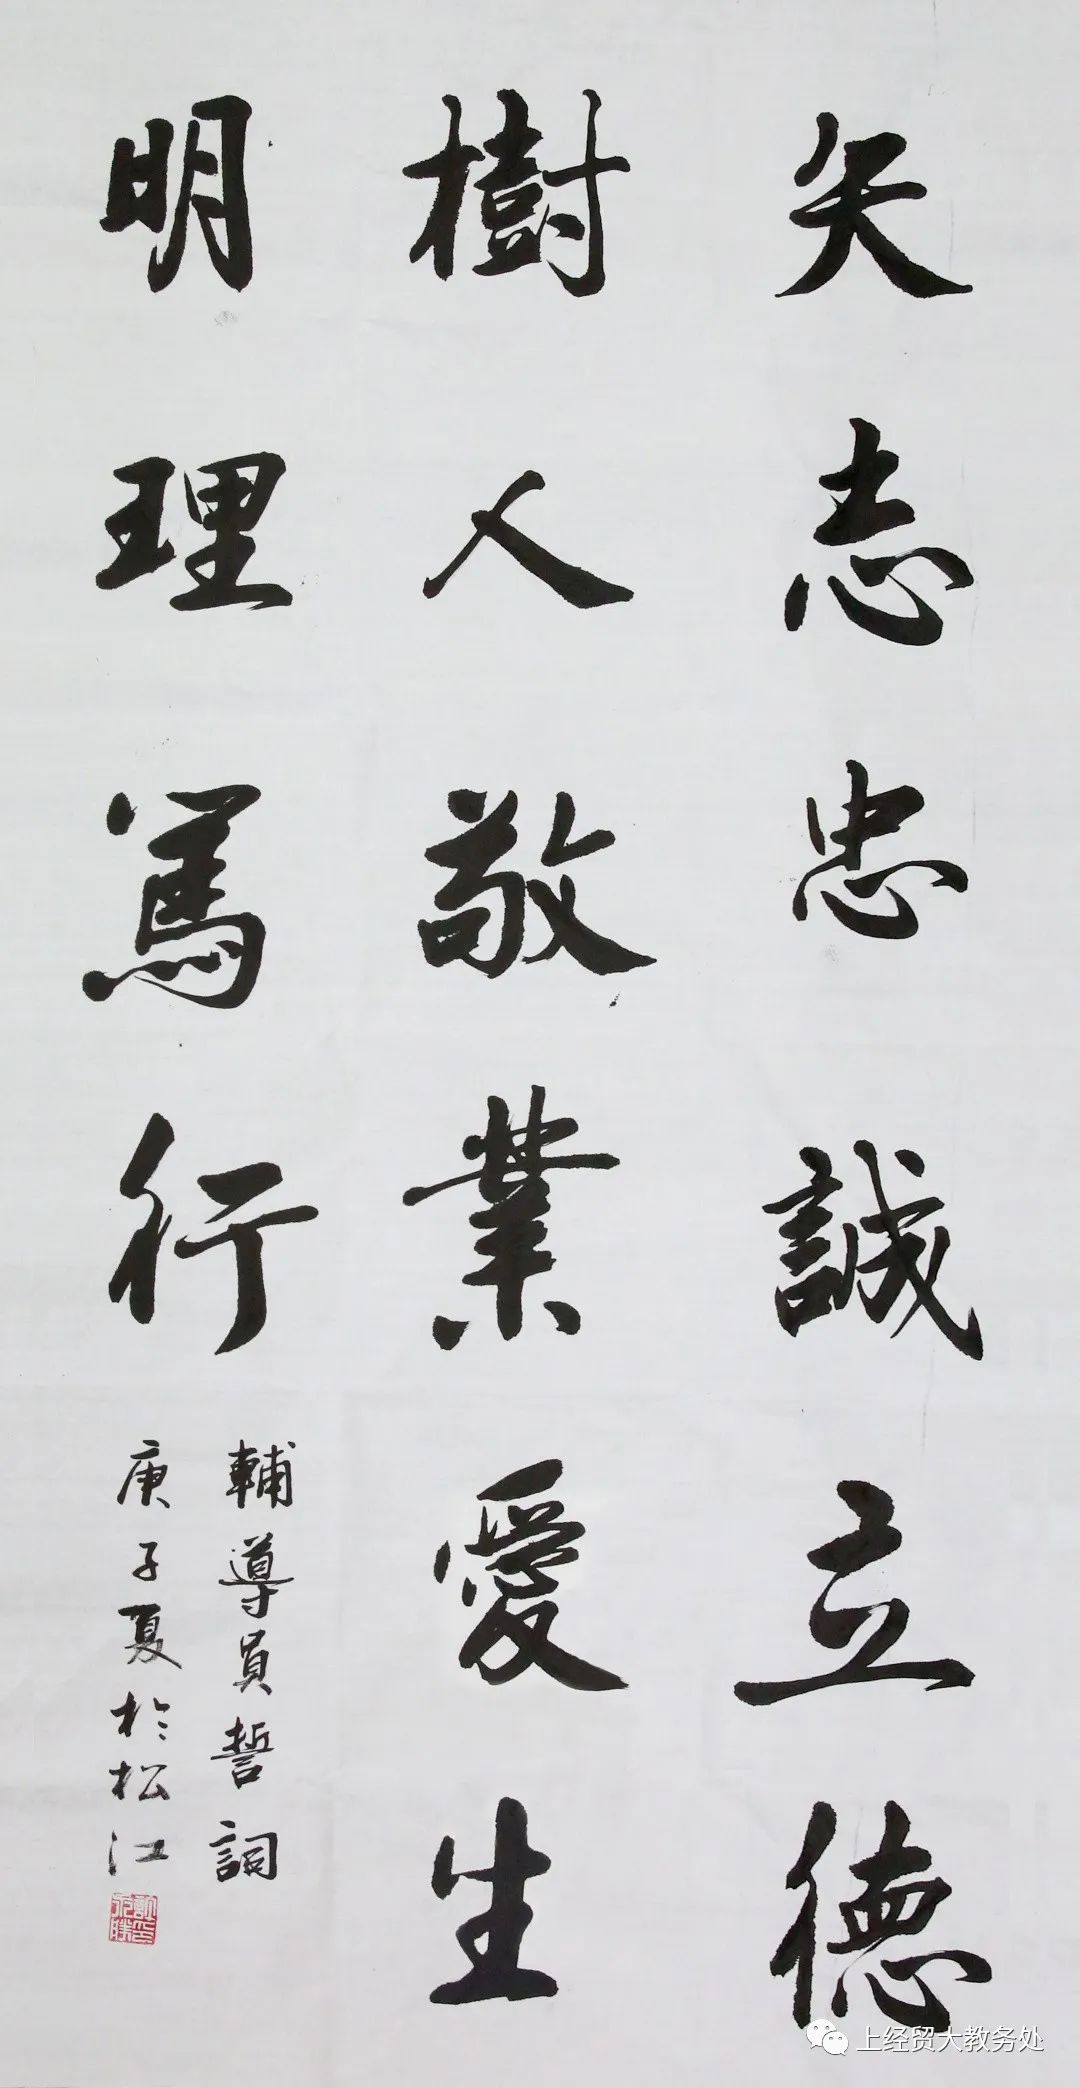 矢志忠誠立德
樹人敬業愛生
明理篤行
輔導員誓詞
庚子夏於松江
上经贸大教务处